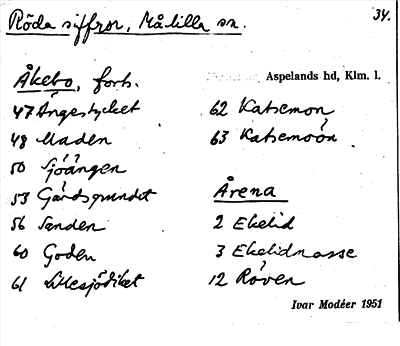 Röda siffror, Målilla sn.
34.
Åkebo, forts.
Aspelands hd, Klm. l.
47 Ängestycket
48 Maden
50 Sjöängen
53 Gårdsgrundet
56 Sanden
60 Goden
61 Lillesjödiket
62 Katsemon
63 Katsemoön
Årena
2 Ekelid
3 Ekelidmosse
12 Röven
Ivar Modéer 1951